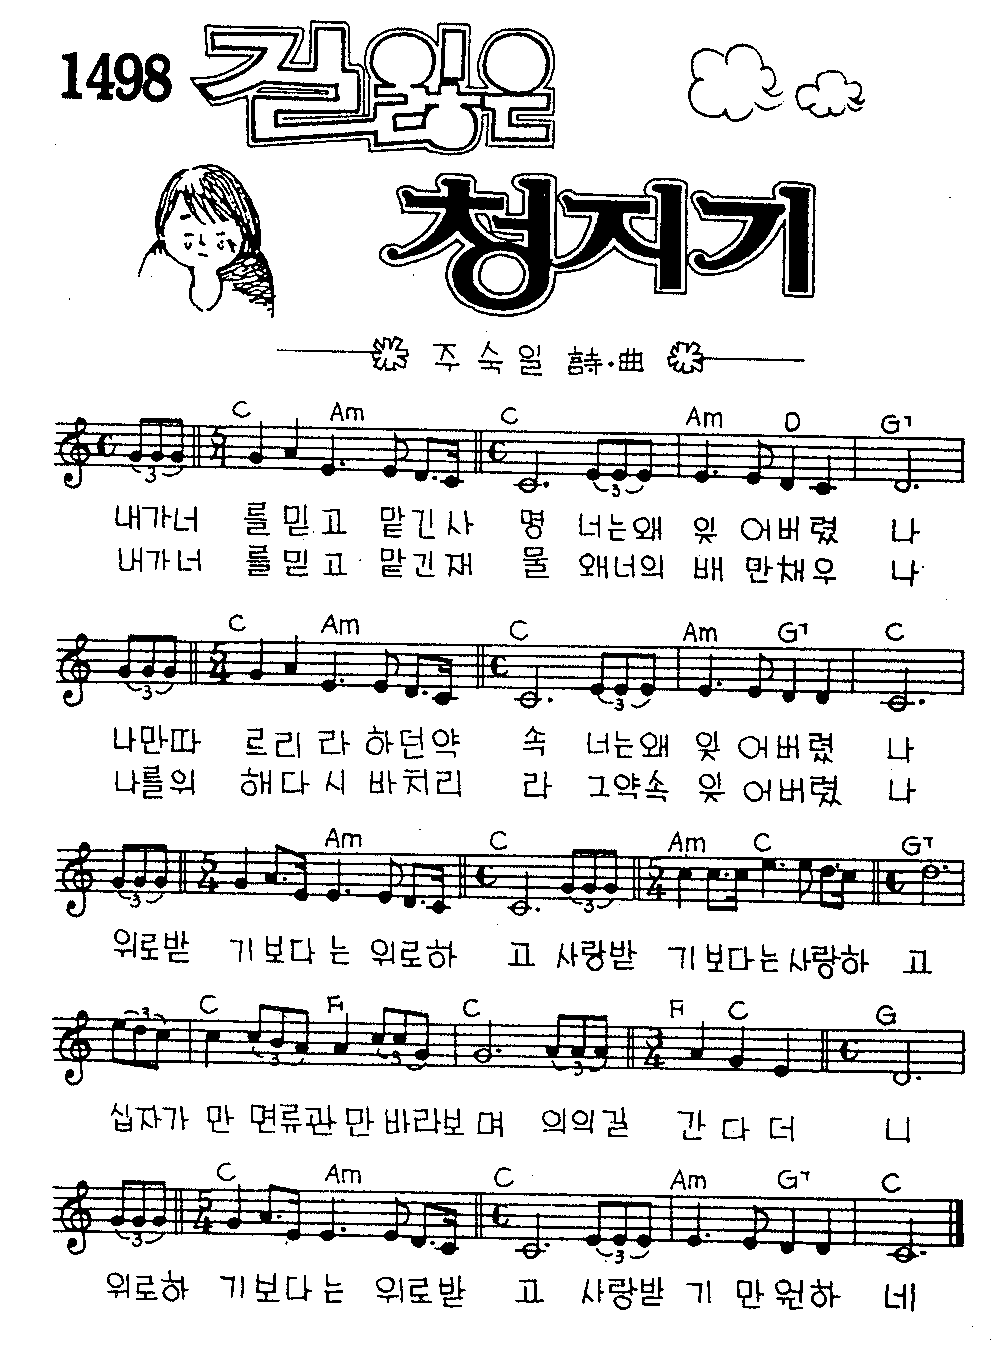 1498
길잃은
청지기
주숙일 詩·曲
C Am C Am D G7
3 5 4 3
내가너 를믿고 맡긴사 명 너는왜 잊 어버렸 나
내가너 를믿고 맡긴재 물 왜너의 배 만채우 나
C Am C Am G7 C
3 5 4 3
나만따 르리라 하던약 속 너는왜 잊 어버렸 나
나를위 해다시 바치리 라 그약속 잊 어버렸 나
Am C Am C G7
3 5 4 3 5 4
위로받 기보다는 위로하 고 사랑받 기보다는사랑하 고
C F C F C G
3 3 3 3 2 4
십자가 만 면류관만 바라보며 의의길 간다더 니
C Am C Am G7 C
3 5 4 3
위로하 기보다는 위로받 고 사랑받 기 만원하 네